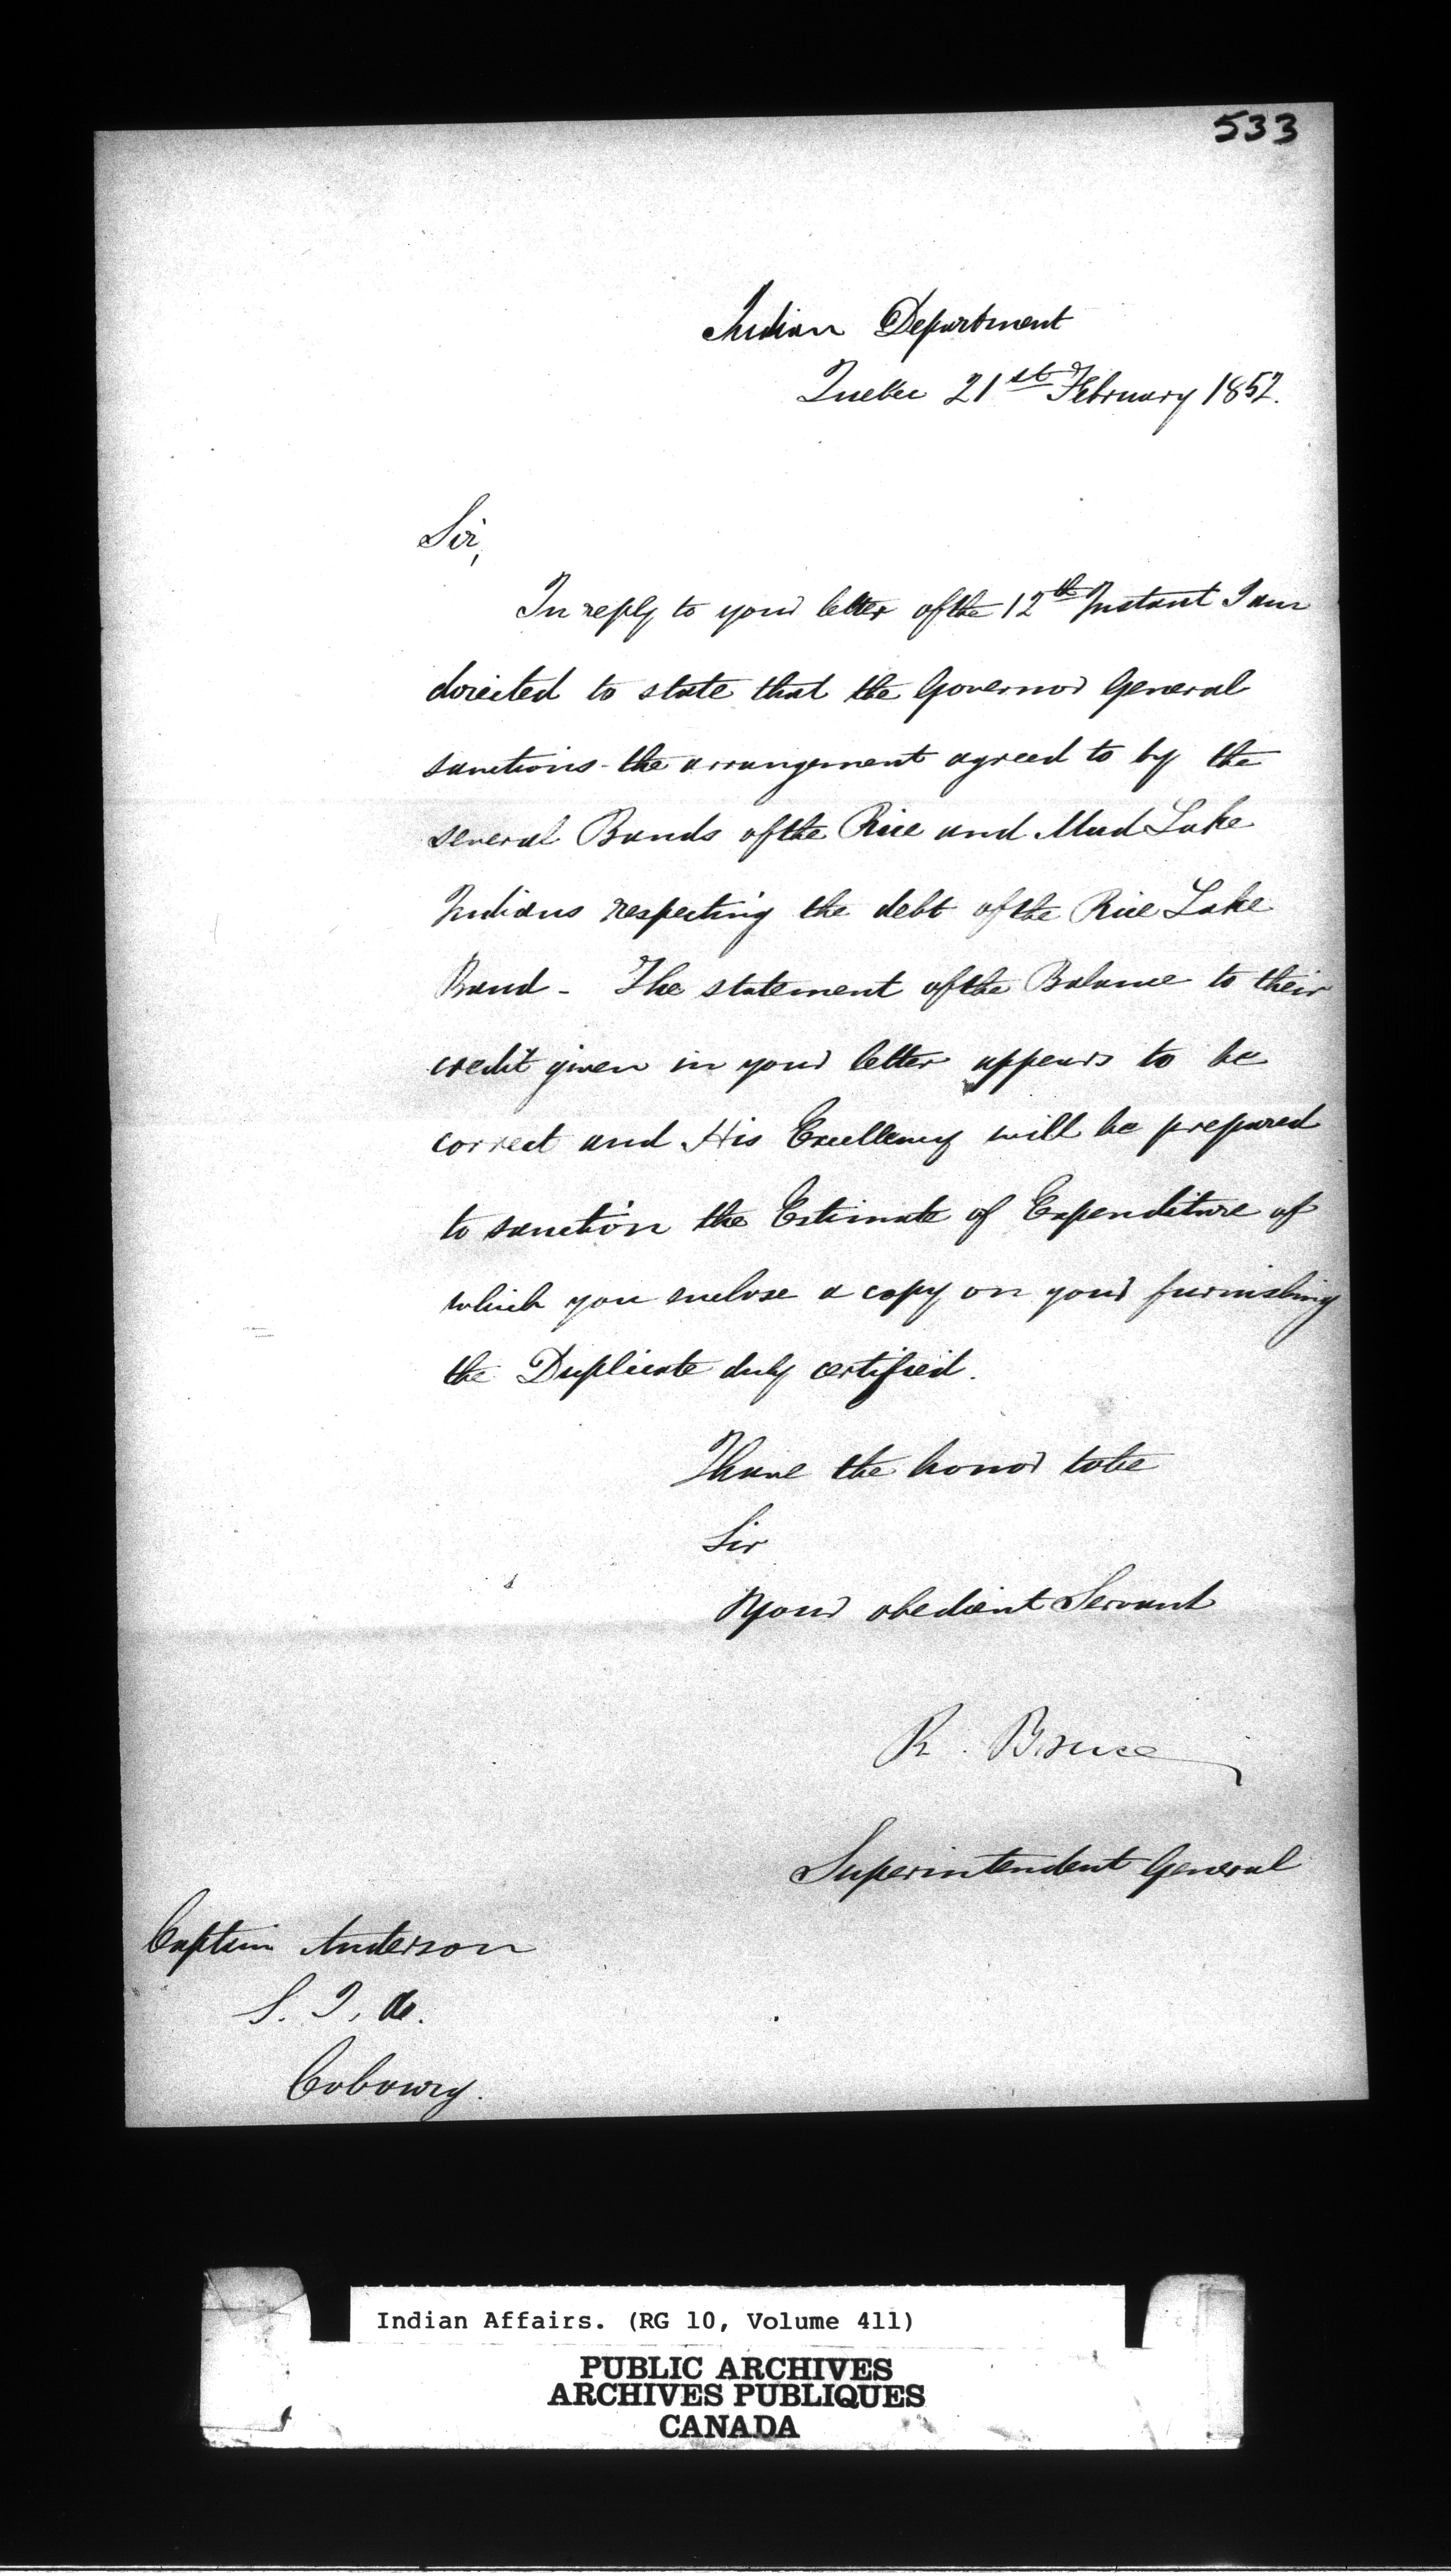 533
Indian Department
Quebec 21st February 1852.
Sir,
In reply to your letter of the 12th Instant I am
directed to state that the Governor General
sanctions the arrangement agreed to by the
several Bands of the Rice and Mud Lake
Indians respecting the debt of the Rice Lake
Band - The statement of the Balance to their
credit given in your letter appears to be
correct and His Excellency will be prepared
to sanction the Estimate of Expenditure of
which you enclose a copy on your furnishing
the Duplicate duly certified.
I have the honor to be
Sir
Your obedient Servant
R. Bruce
Superintendent General
Captain Anderson
S. I. A.
Cobourg.
Indian Affairs. (RG 10, Volume 411)
PUBLIC ARCHIVES
ARCHIVES PUBLIQUES
CANADA